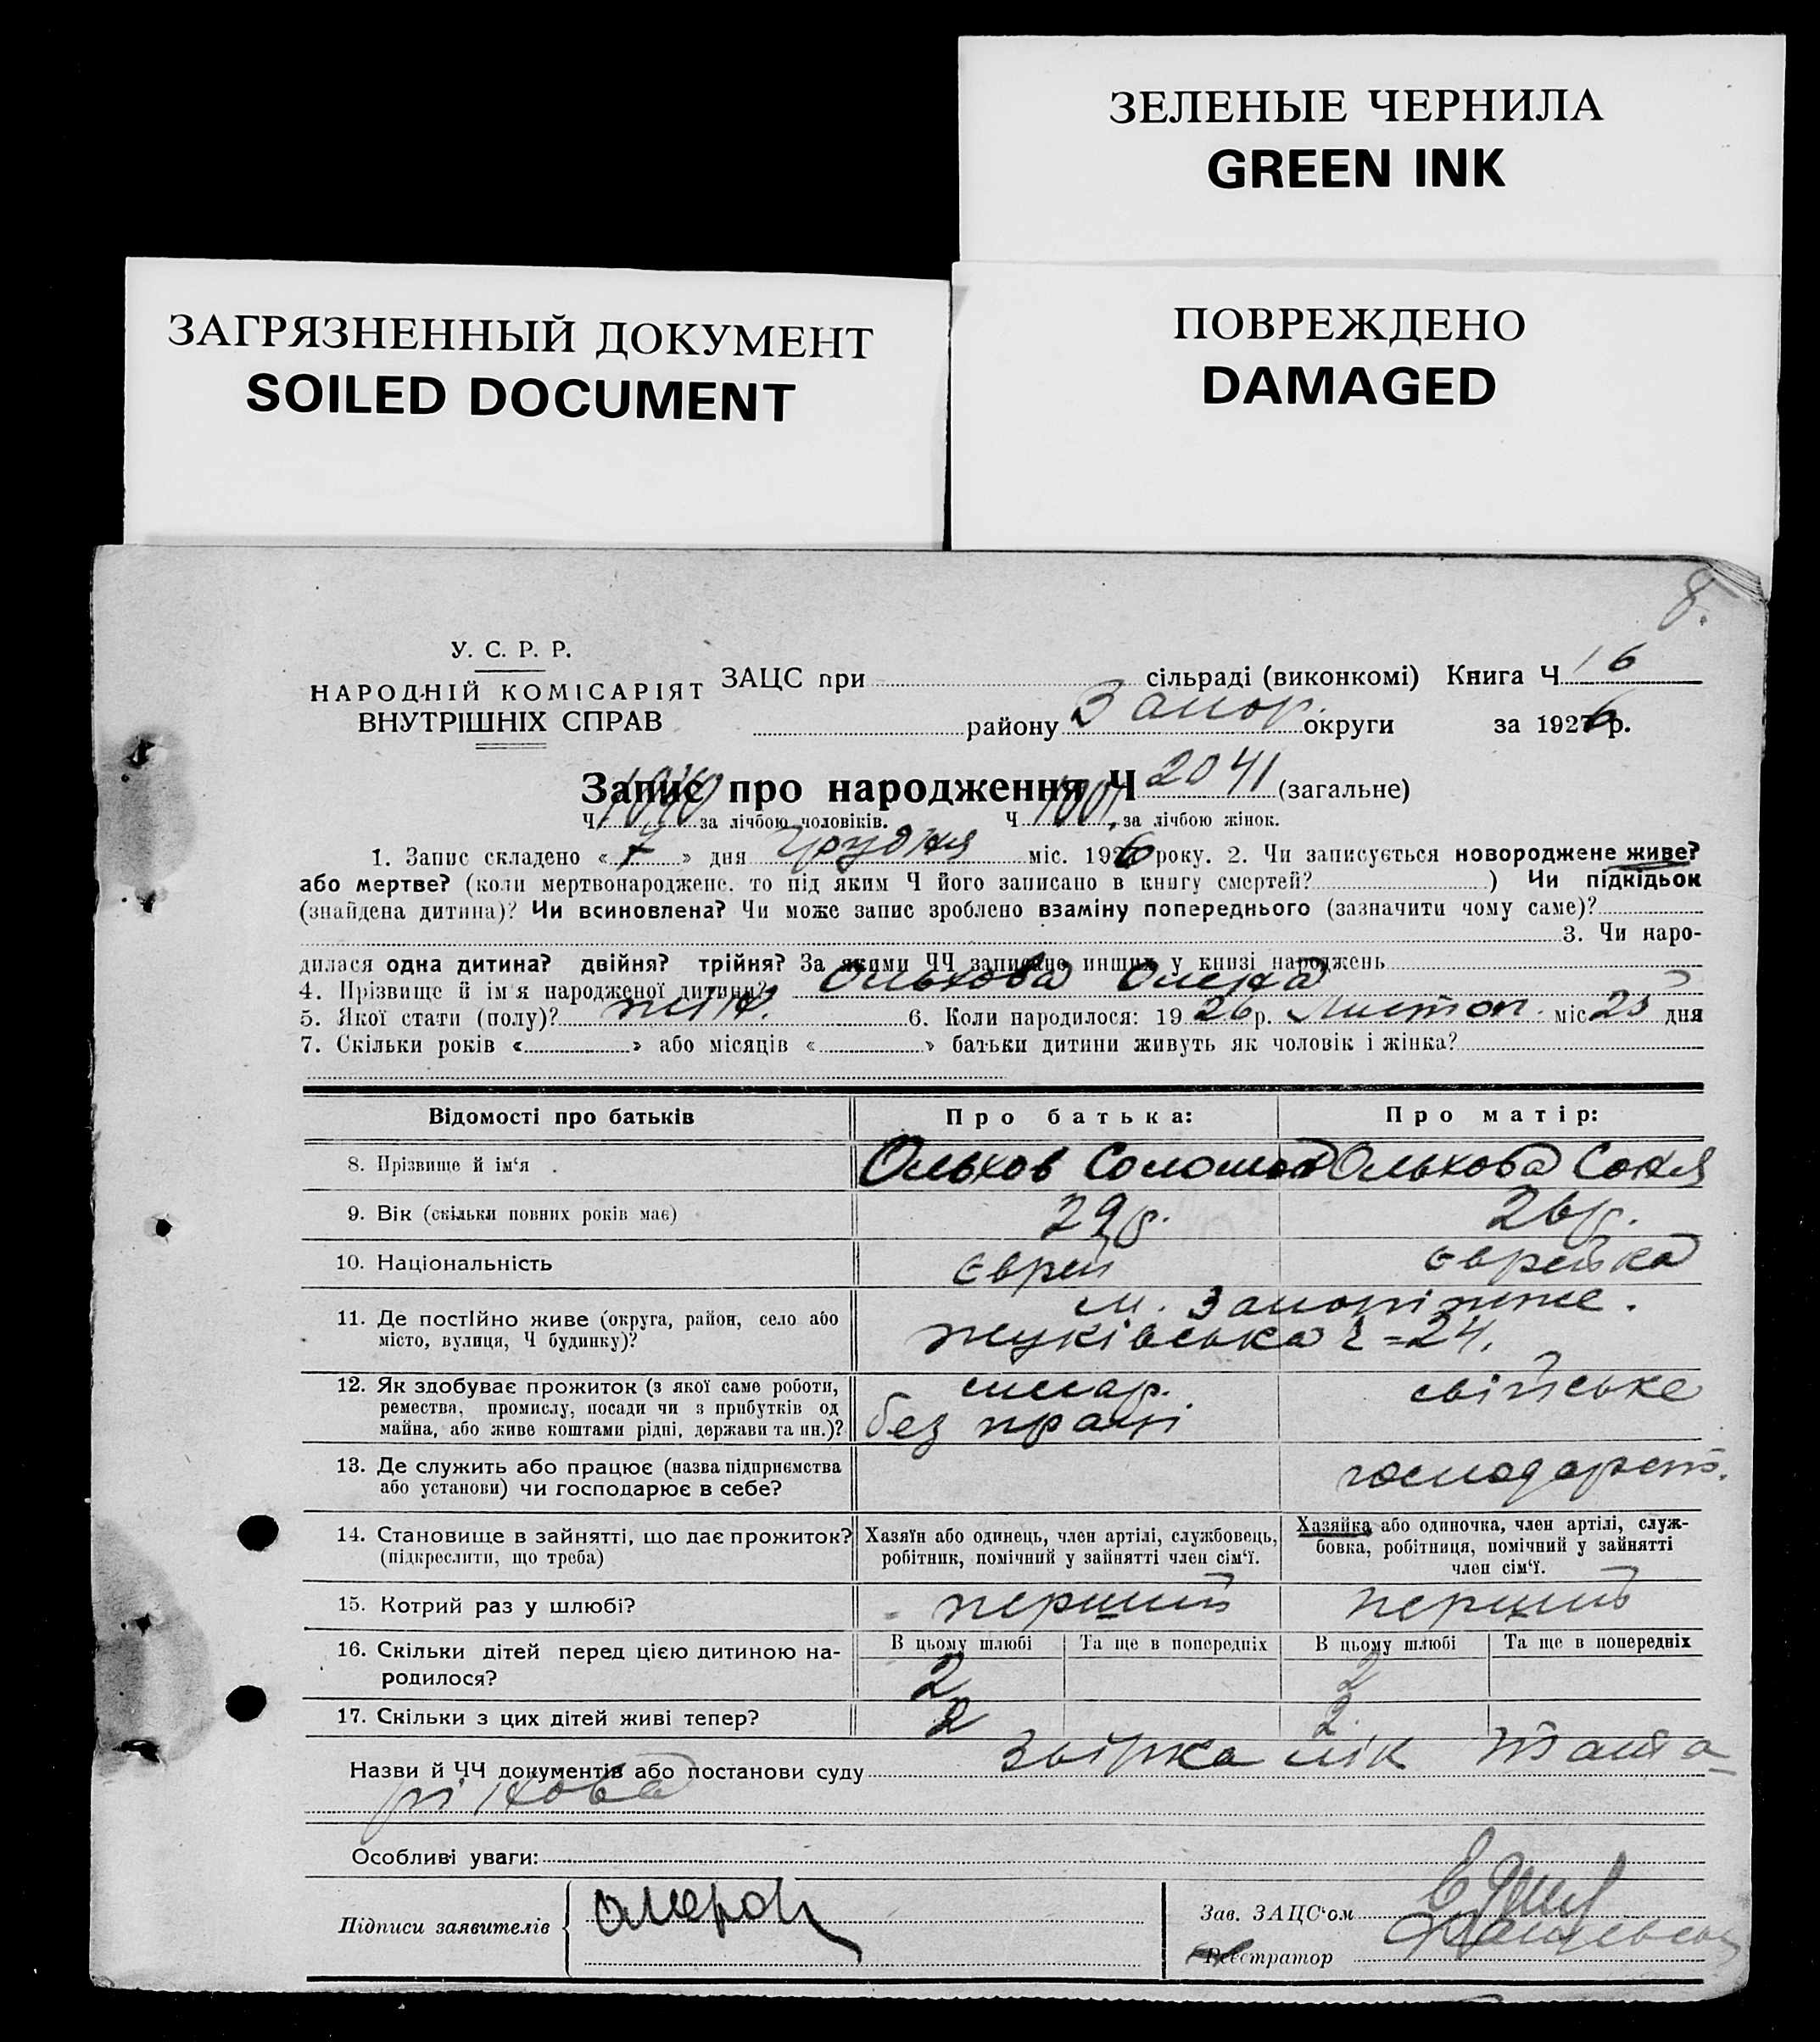 ЗЕЛЕНЫЕ ЧЕРНИЛА
GREEN INK
ЗАГРЯЗНЕННЫЙ ДОКУМЕНТ
SOILED DOCUMENT
ПОВРЕЖДЕНО
DAMAGED
8.
У. С. Р. Р.
НАРОДНІЙ КОМІСАРІЯТ
ВНУТРІШНІХ СПРАВ
ЗАЦС при сільраді (виконкомі) Книга Ч 16
району Запор. округи за 1926 р.
Запис про народження Ч 2041 (загальне)
Ч 1040 за лічбою чоловіків. Ч 1001 за лічбою жінок.
1. Запис складено « 7 » дня грудня міс. 1926 року. 2. Чи записується новороджене живе?
або мертве? (коли мертвонароджене. то під яким Ч його записано в книгу смертей? ) Чи підкідьок
(знайдена дитина)? Чи всиновлена? Чи може запис зроблено взаміну попереднього (зазначити чому саме)?
3. Чи наро-
дилася одна дитина? двійня? трійня? За якими ЧЧ записано инших у книзі народжень
4. Прізвище й ім'я народженої дитини? Ольхова Олена
5. Якої стати (полу)? жін. 6. Коли народилося: 19 26 р. Листоп. міс 25 дня
7. Скільки років « » або місяців « » батьки дитини живуть як чоловік і жінка?
Відомості про батьків Про батька: Про матір:
8. Прізвище й ім‘я . Ольхов Соломон Ольхова Соня
9. Вік (скільки повних років має) 29 р. 26 р.
10. Національність єврей єврейка
11. Де постійно живе (округа, район, село або м. Запоріжже.
місто, вулиця, Ч будинку)? Жуківська Ч =24.
12. Як здобуває прожиток (з якої саме роботи, свійське
ремества, промислу, посади чи з прибутків од без праці
майна, або живе коштами рідні, держави та ин.)?
13. Де служить або працює (назва підприємства господарст.
або установи) чи господарює в себе?
14. Становище в зайнятті, що дає прожиток? Хазяїн або одинець, член артілі, службовець, Хазяйка або одиночка, член артілі, служ-
(підкреслити, що треба) робітник, помічний у зайнятті член сім‘ї. бовка, робітниця, помічний у зайнятті
член сім‘ї.
15. Котрий раз у шлюбі? перший перший
16. Скільки дітей перед цією дитиною на- В цьому шлюбі Та ще в попередніх В цьому шлюбі Та ще в попередніх
родилося? 2 2
17. Скільки з цих дітей живі тепер? 2 2
Назви й ЧЧ документів або постанови суду
Особливі уваги:
Підписи заявителів
Зав. ЗАЦС‘ом
Реєстратор